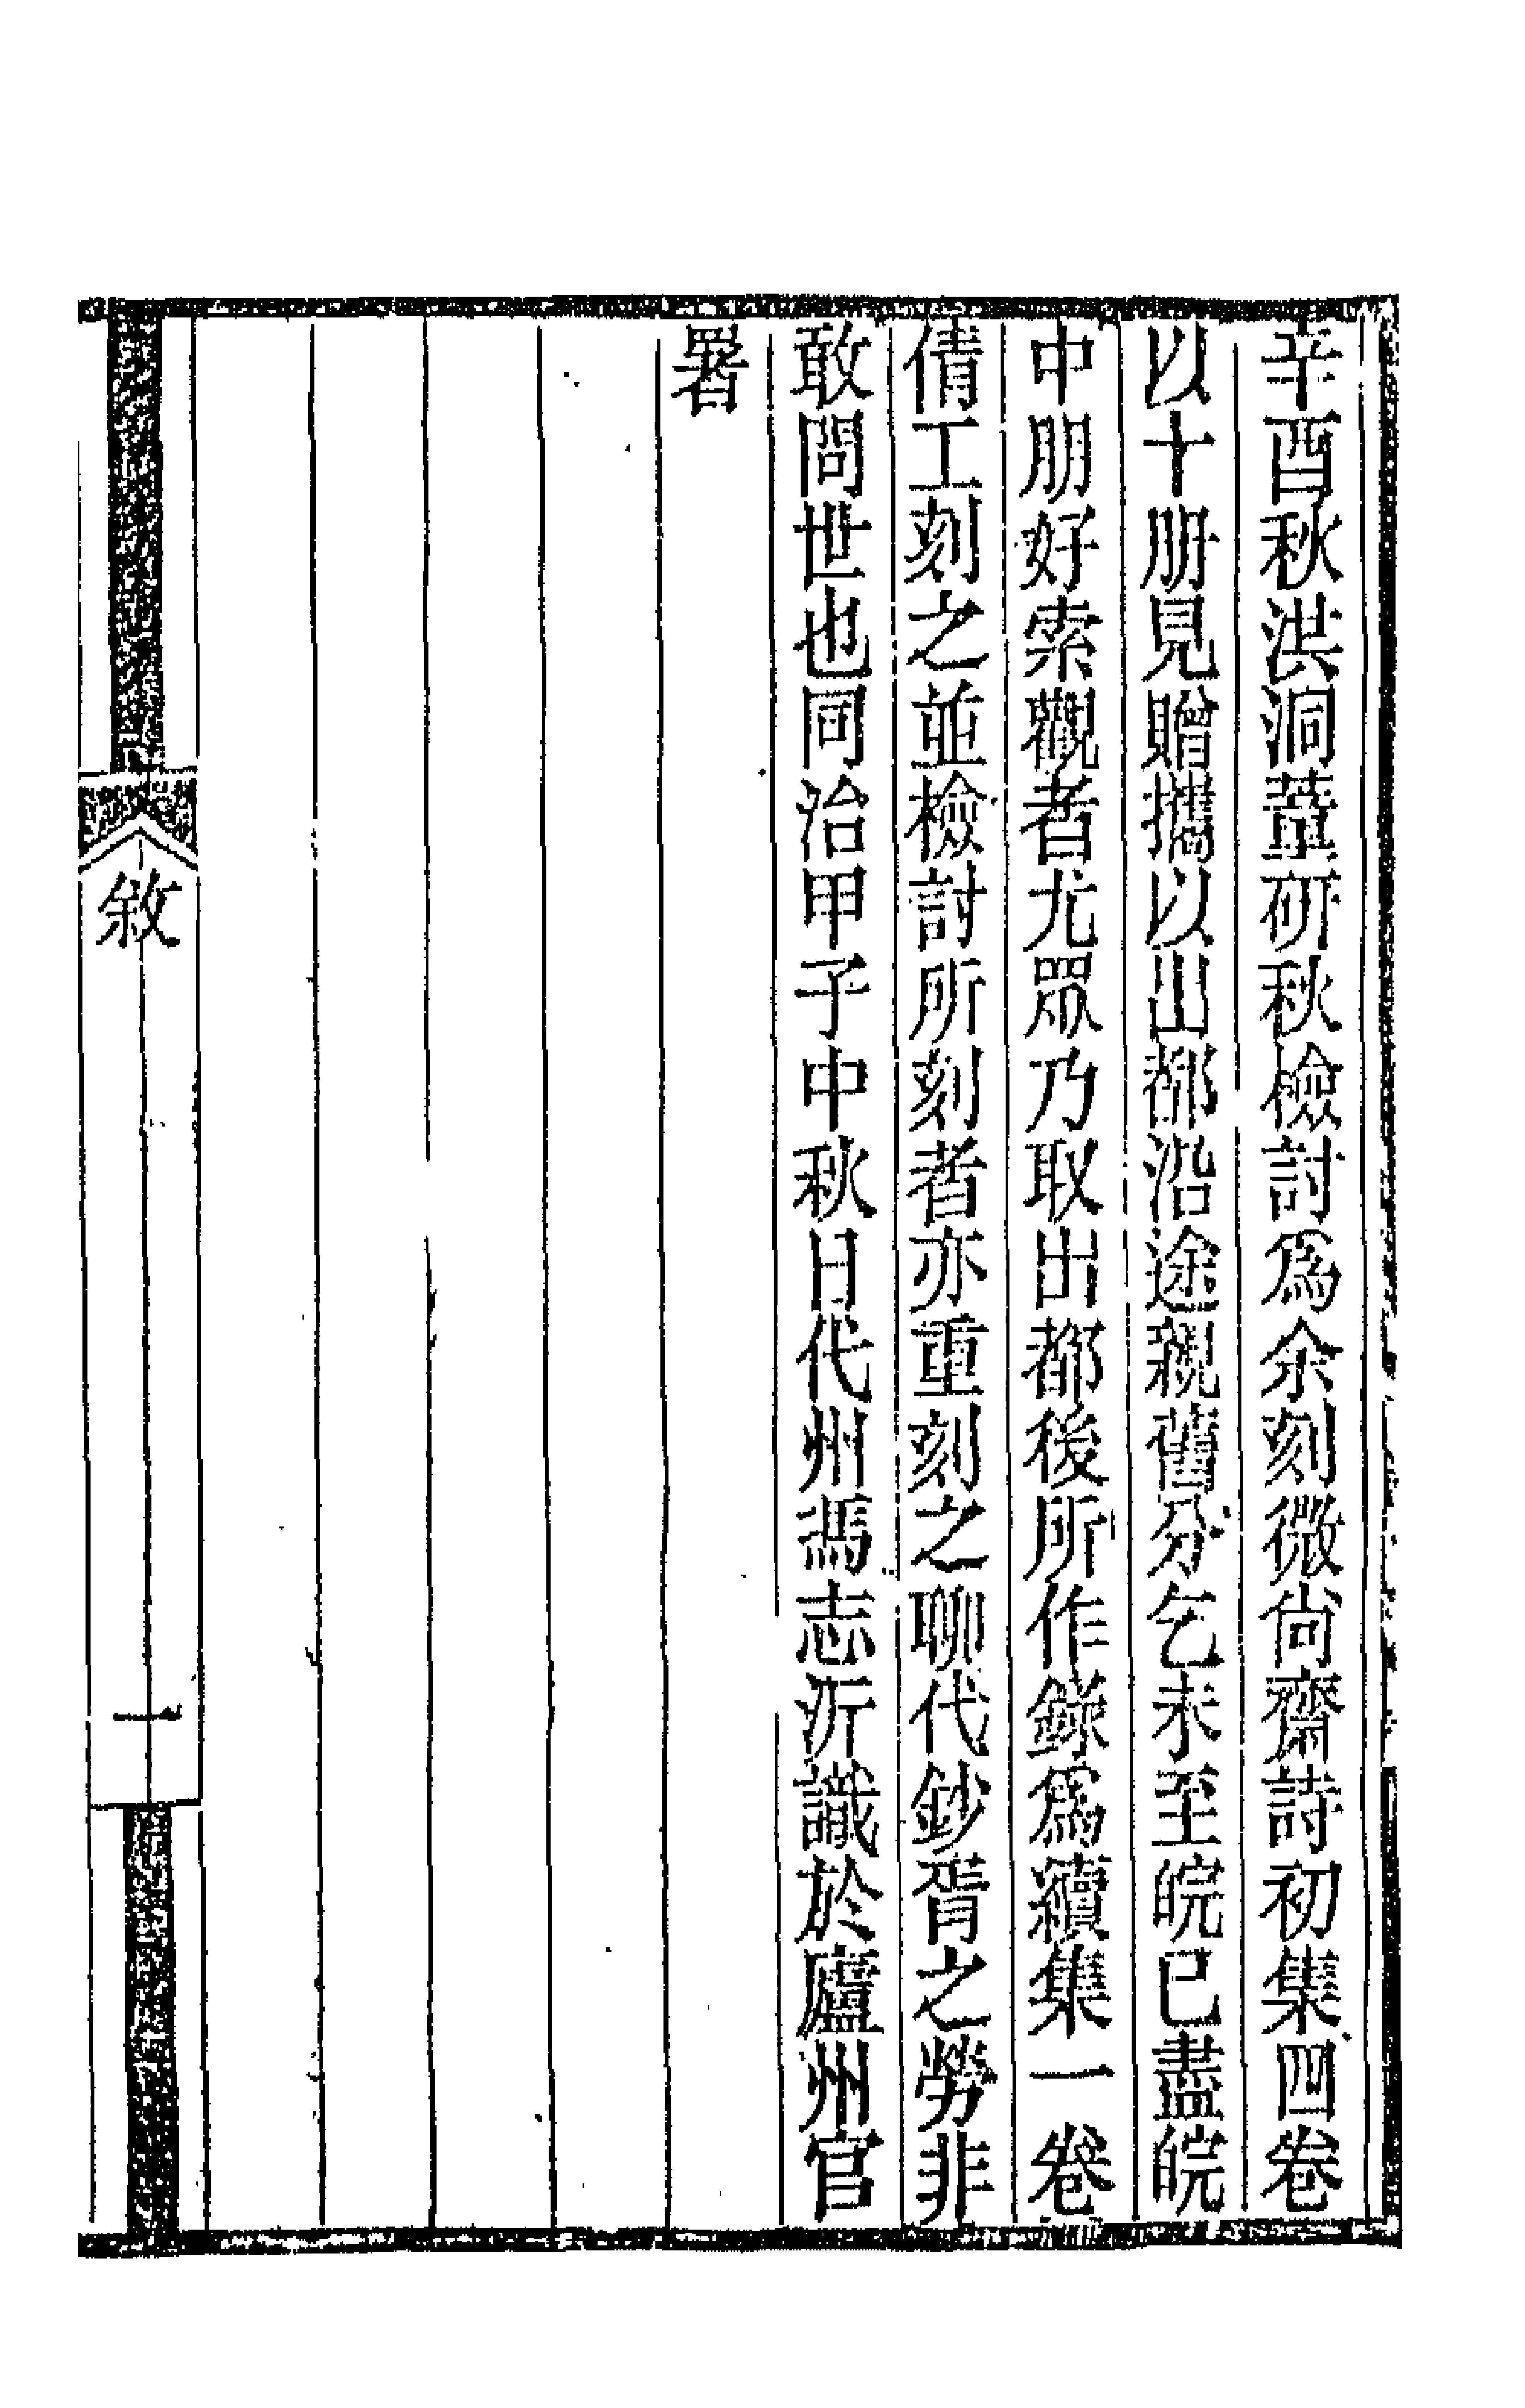 辛酉秋洪洞董研秋檢討爲余刻微尚齋詩初集四卷
以十册見贈攜以出都沿途親舊分乞未至皖已盡皖
中朋好索觀者尤眾乃取出都後所作錄爲續集一卷
倩工刻之並檢討所刻者亦重刻之聊代鈔胥之勞非
敢問世也同治甲子中秋日代州馮志沂識於廬州官
署
敘
一